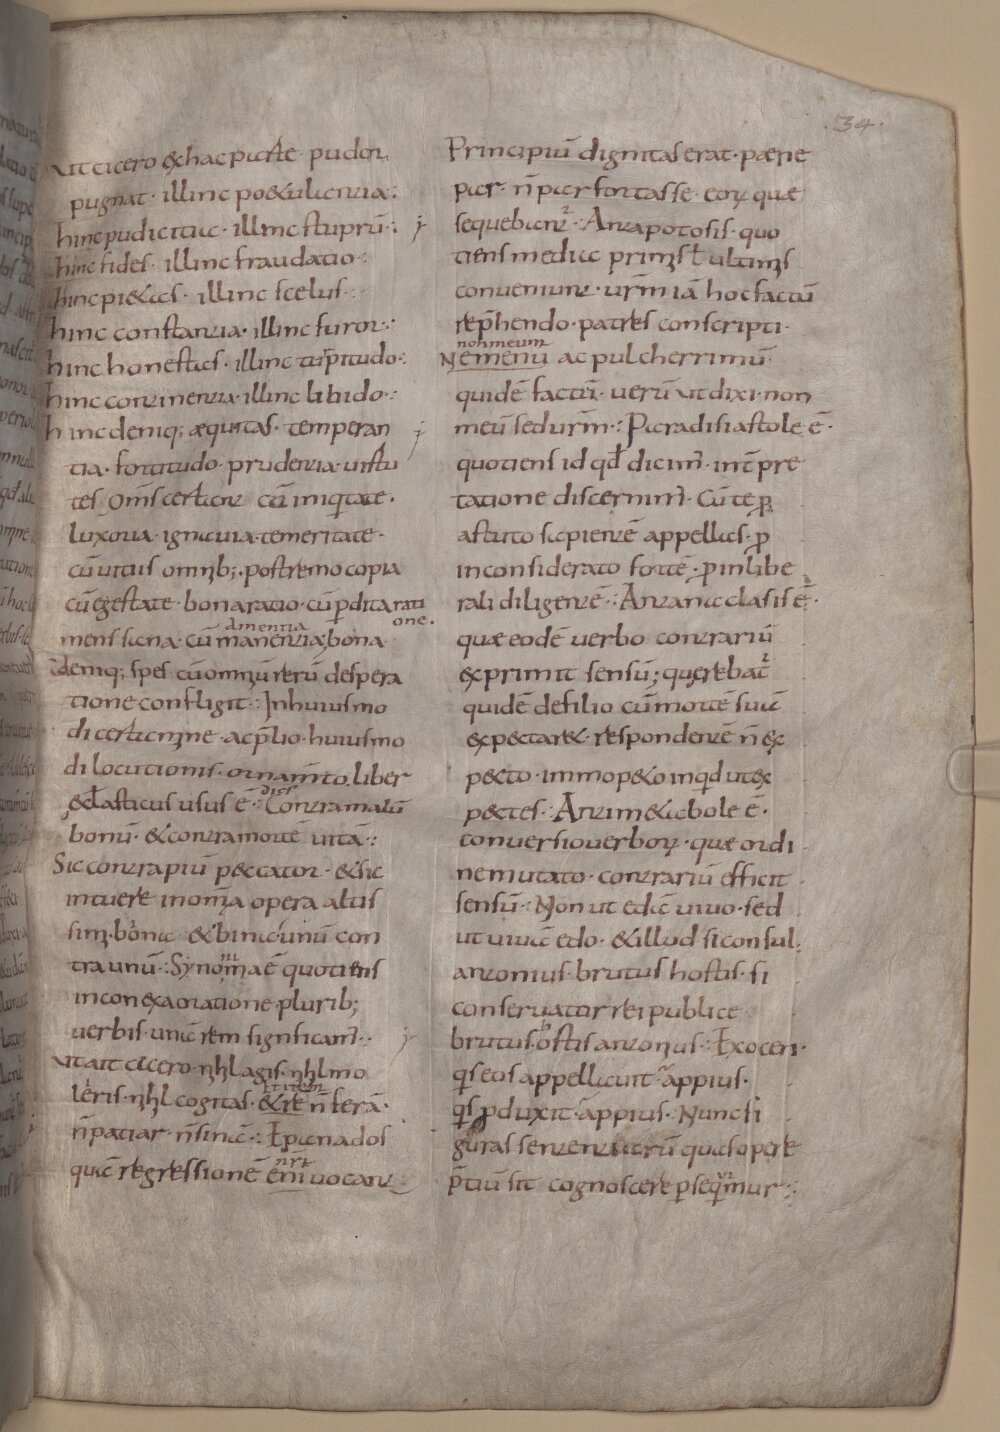 .34.
Ut cicero & hac parte pudor
pugnat · illinc p&ulantia :
hinc pudicitia · illinc stuprū ·
hinc fides · illinc fraudatio ·:
hinc pi&as · illinc scelus ·
hinc constantia · illinc furor ·:
hinc honestas · illinc turpitudo ·:
hinc continentia · illinc libido ·:
hinc deniq; æquitas · temperan
tia · fortitudo · prudentia · uirtu
tes om̄s certant cū iniq̇tate ·
luxoria · ignauia · temeritate ·
cū uitiis omnib; · postremo copia
cū egestate · bona ratio · cū ꝑdita rati
one ·
amentia
mens sana · cū manentia, bona
deniq; spes cū omniū rerū despera
tione confligit ·: In huiusmo
di certamine · ac p̄lio · huiusmo
di locutionis · ornam̄to · liber
dicens
ęcl̄asticus usus ē · Contra malū
bonū · & contra mortē uita ·:
Sic contra piū peccator · & sic
intuere in om̄a opera altis
simi · bina & bina · unū con
tra unū ·: Synonima ē quotiens
in conexa oratione plurib;
uerbis · unā rem significam̄ ·:
Ut ait cicero · nihl agis · nihl mo
leris · nihl cogitas ·
n̄ patiar · n̄ sinā ·: Epanados
quā regressionē nr̄i uocant ·:
Principiū dignitas erat · pæne
par · n̄ par fortasse · eoꝝ quæ
sequebant̄ · Antapotosis · quo
tiens media primis l̄ ultimis
conueniunt · ur̄m iā hoc factū
rep̄hendo · patres conscripti ·
non meum
Nemenū ac pulcherrimū
quidē factū · uerū ut dixi · non
meū sed ur̄m ·: Paradisiastole ē ·
quotiens id qd̄ dicim̄ · int̄pre
tatione discernim̄ · Cū te ꝓ
astuto sapientē appellas · ꝓ
inconsiderato fortē · ꝓ inlibe
rali diligentē ·: Antanaclasis ē ·
quæ eodē uerbo contrariū
exprimit sensū; querebat̄
quidē de filio cū mortē suā
expectar& · respondentē n̄ ex
pecto · immo p&o inq̇d ut ex
pectes ·: Antim&abole ē ·
conuersio uerboꝝ · quæ ordi
ne mutato · contrariū efficit
sensū ·: Non ut edā uiuo · sed
ut uiuā edo · & illud si consul ·
antonius · brutus hostis · si
conseruator rei publice
brutus · ostis antonius ·: Exoceri ·
q̇s eos appellauit · appius ·
q̇s ꝓduxit · appius · Nunc fi
guras sententiarū quas operę
p̄tiū sit cognoscere ꝑseq̇mur ·: